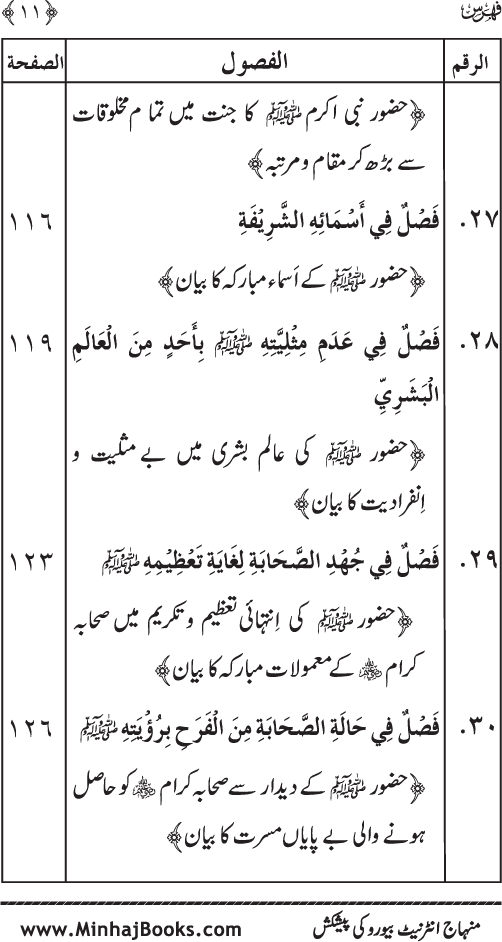 فہرس ﴿١١﴾
الرقم الفصول الصفحة
﴿حضور نبی اکرم ﷺ کا جنت میں تمام مخلوقات
سے بڑھ کر مقام و مرتبہ﴾
٢٧. فَصْلٌ فِي أَسْمَائِهِ الشَّرِيْفَةِ ١١٦
﴿حضور ﷺ کے اَسماء مبارکہ کا بیان﴾
٢٨. فَصْلٌ فِي عَدَمِ مِثْلِيَّتِهِ ﷺ بِأَحَدٍ مِنَ الْعَالَمِ ١١٩
الْبَشَرِيِّ
﴿حضور ﷺ کی عالم بشری میں بے مثلیت و
اِنفرادیت کا بیان﴾
٢٩. فَصْلٌ فِي جُهْدِ الصَّحَابَةِ لِغَايَةِ تَعْظِيْمِهِ ﷺ ١٢٣
﴿حضور ﷺ کی اِنتہائی تعظیم و تکریم میں صحابہ
کرام ؓ کے معمولات مبارکہ کا بیان﴾
٣٠. فَصْلٌ فِي حَالَةِ الصَّحَابَةِ مِنَ الْفَرَحِ بِرُؤْيَتِهِ ﷺ ١٢٦
﴿حضور ﷺ کے دیدار سے صحابہ کرام ؓ کو حاصل
ہونے والی بے پایاں مسرت کا بیان﴾
منہاج انٹرنیٹ بیورو کی پیشکش www.MinhajBooks.com